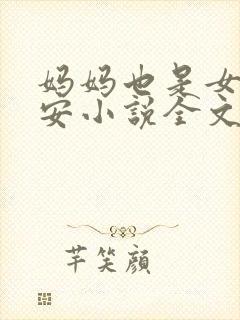 妈妈也是女
安小说全文
芊笑顔